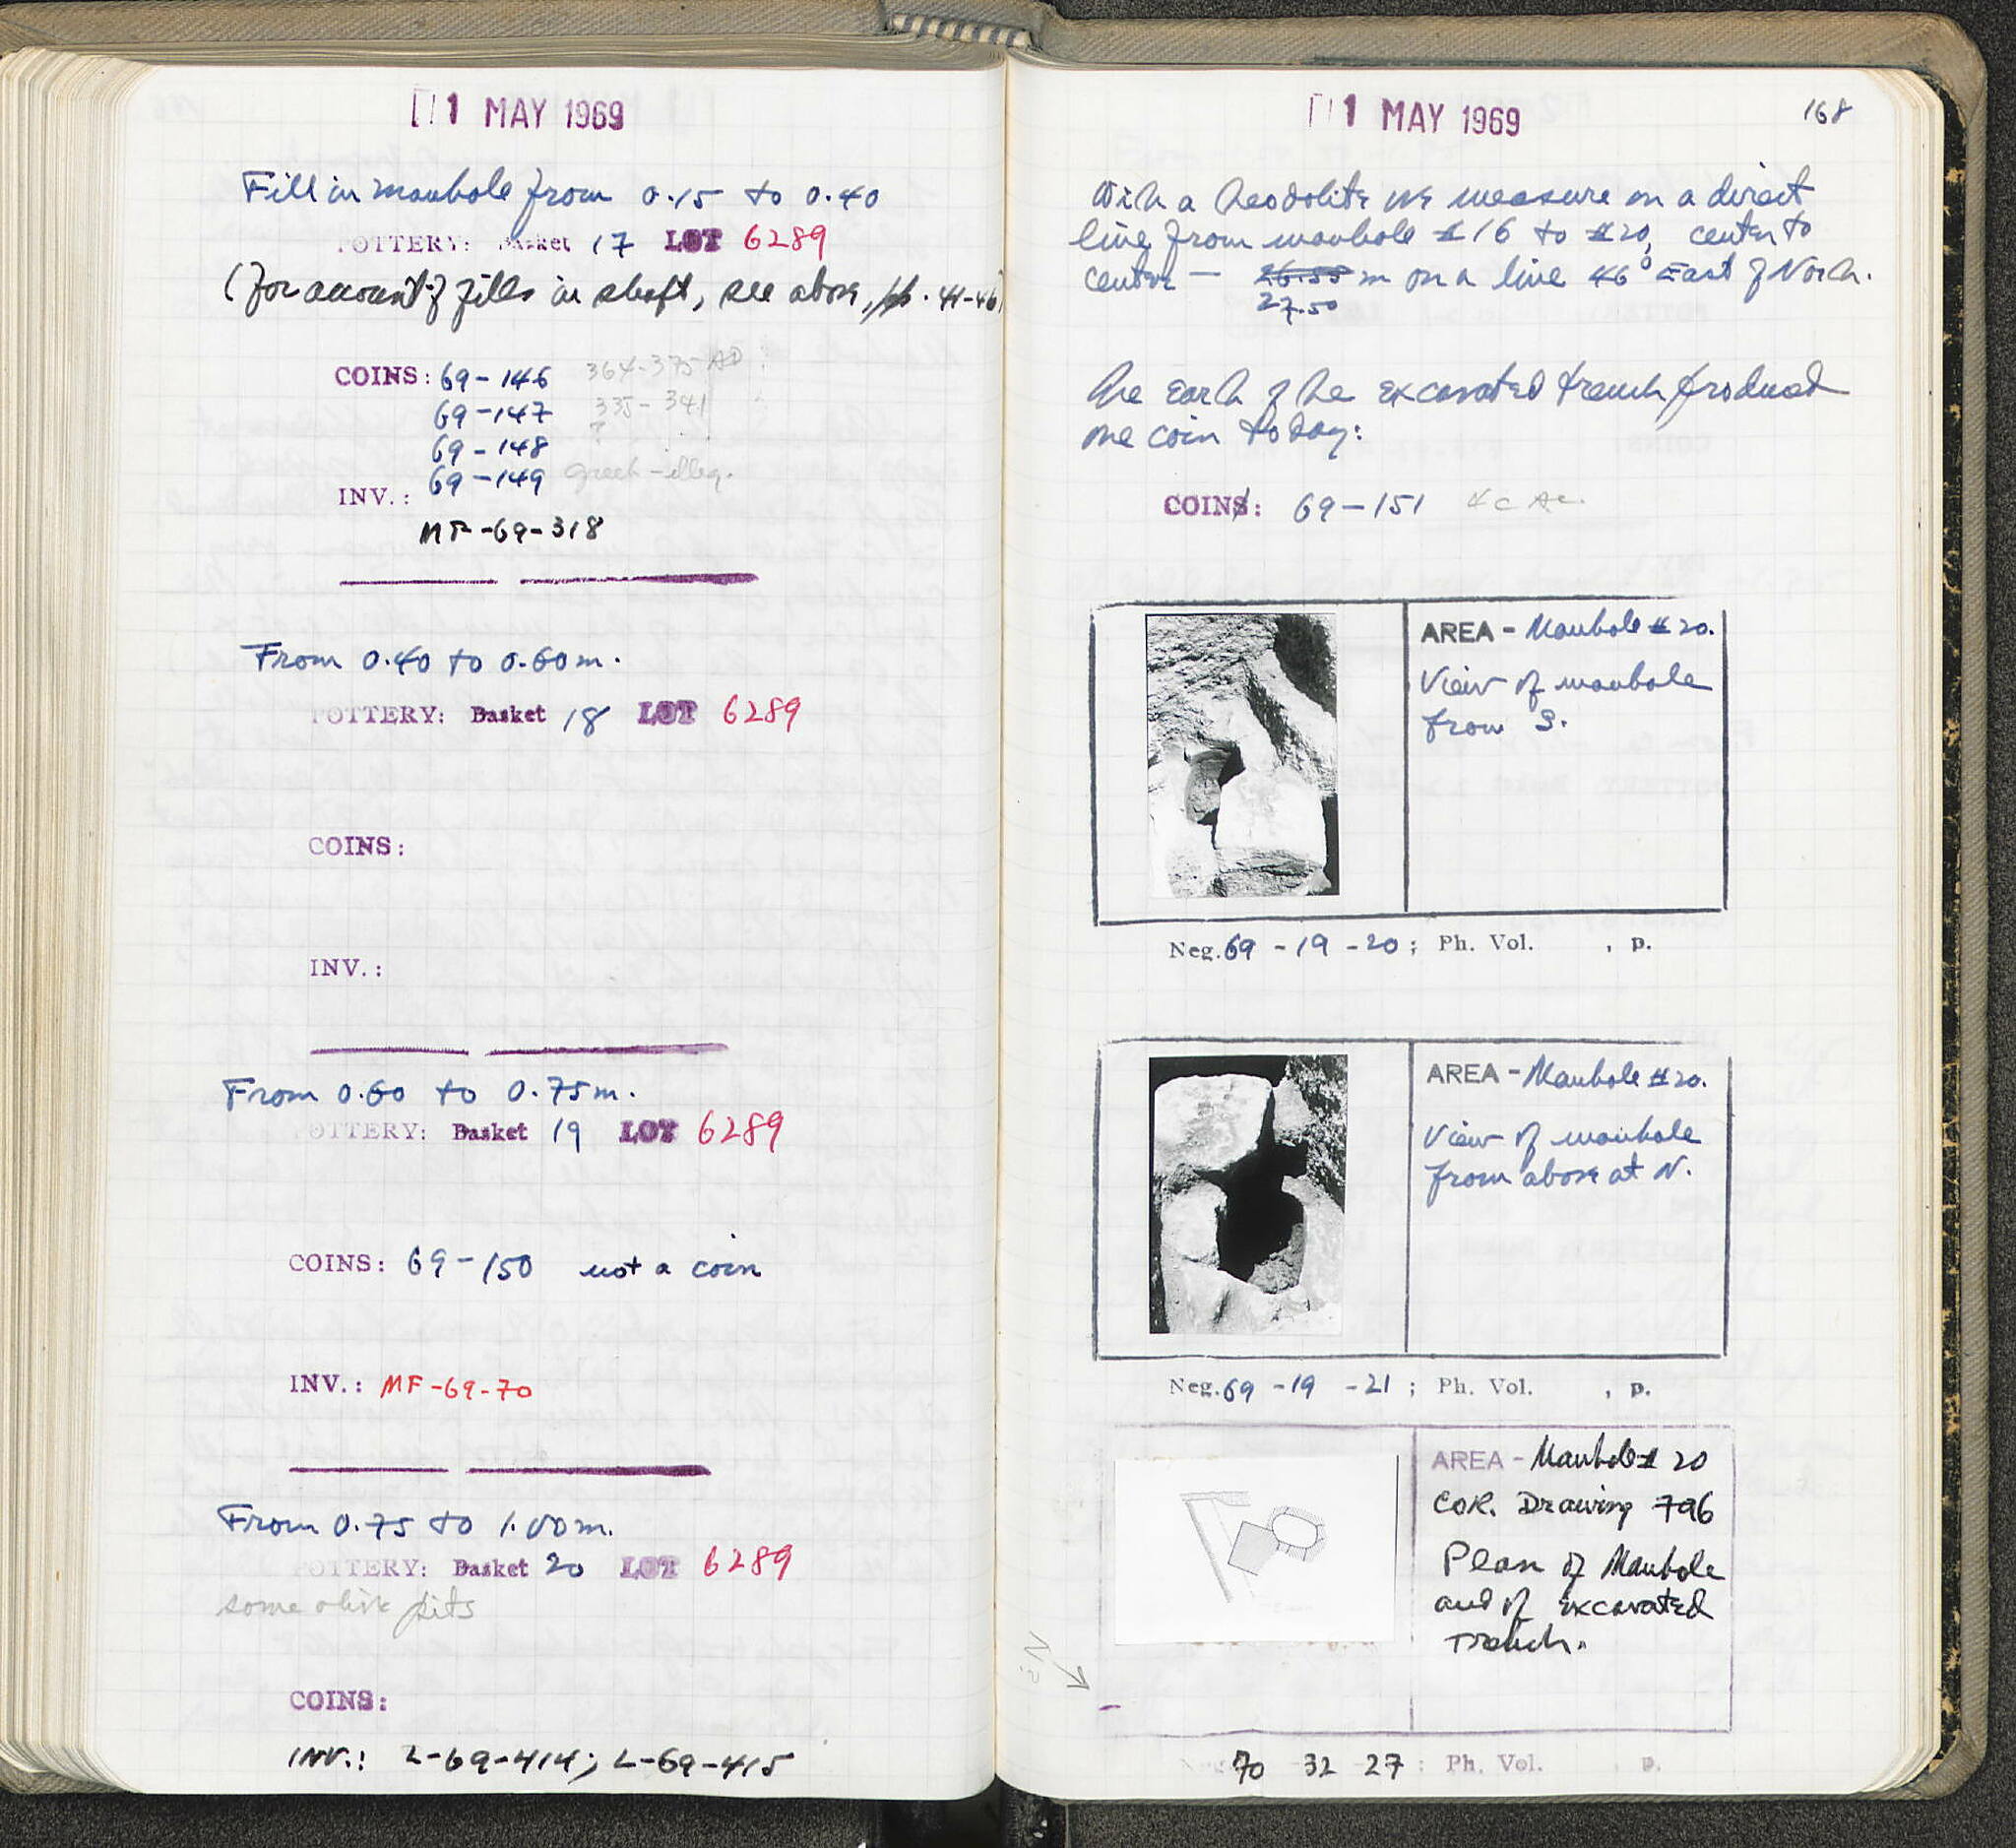 1 MAY 1969
Fill in manhole from 0.15 to 0.40
POTTERY: Basket 17 LOT 6289
(for account of fills in shaft, see above, pp. 41-46)
COINS: 69-146 364-375 AD
69-147 335-341
69-148 ?
69-149 Greek-illeg.
INV.:
MF-69-318
From 0.40 to 0.60m.
POTTERY: Basket 18 LOT 6289
COINS:
INV.:
From 0.60 to 0.75m.
POTTERY: Basket 19 LOT 6289
COINS: 69-150 not a coin
INV.: MF-69-70
From 0.75 to 1.00m.
POTTERY: Basket 20 LOT 6289
some olive pits
COINS:
INV.: L-69-414; L-69-415
1 MAY 1969
168
With a theodolite we measure on a direct
line from manhole #16 to #20, center to
center — 26.55 m on a line 46° East of North.
27.50
The earth of the excavated trench produced
one coin today:
COINS: 69-151 4c AC.
AREA - Manhole #20.
View of manhole
from S.
Neg. 69-19-20; Ph. Vol. , p.
AREA - Manhole #20.
View of manhole
from above at N.
Neg. 69-19-21; Ph. Vol. , p.
AREA - Manhole # 20
COR. Drawing 796
Plan of Manhole
and of excavated
Trench.
N
Neg. 70 32 27: Ph. Vol. p.